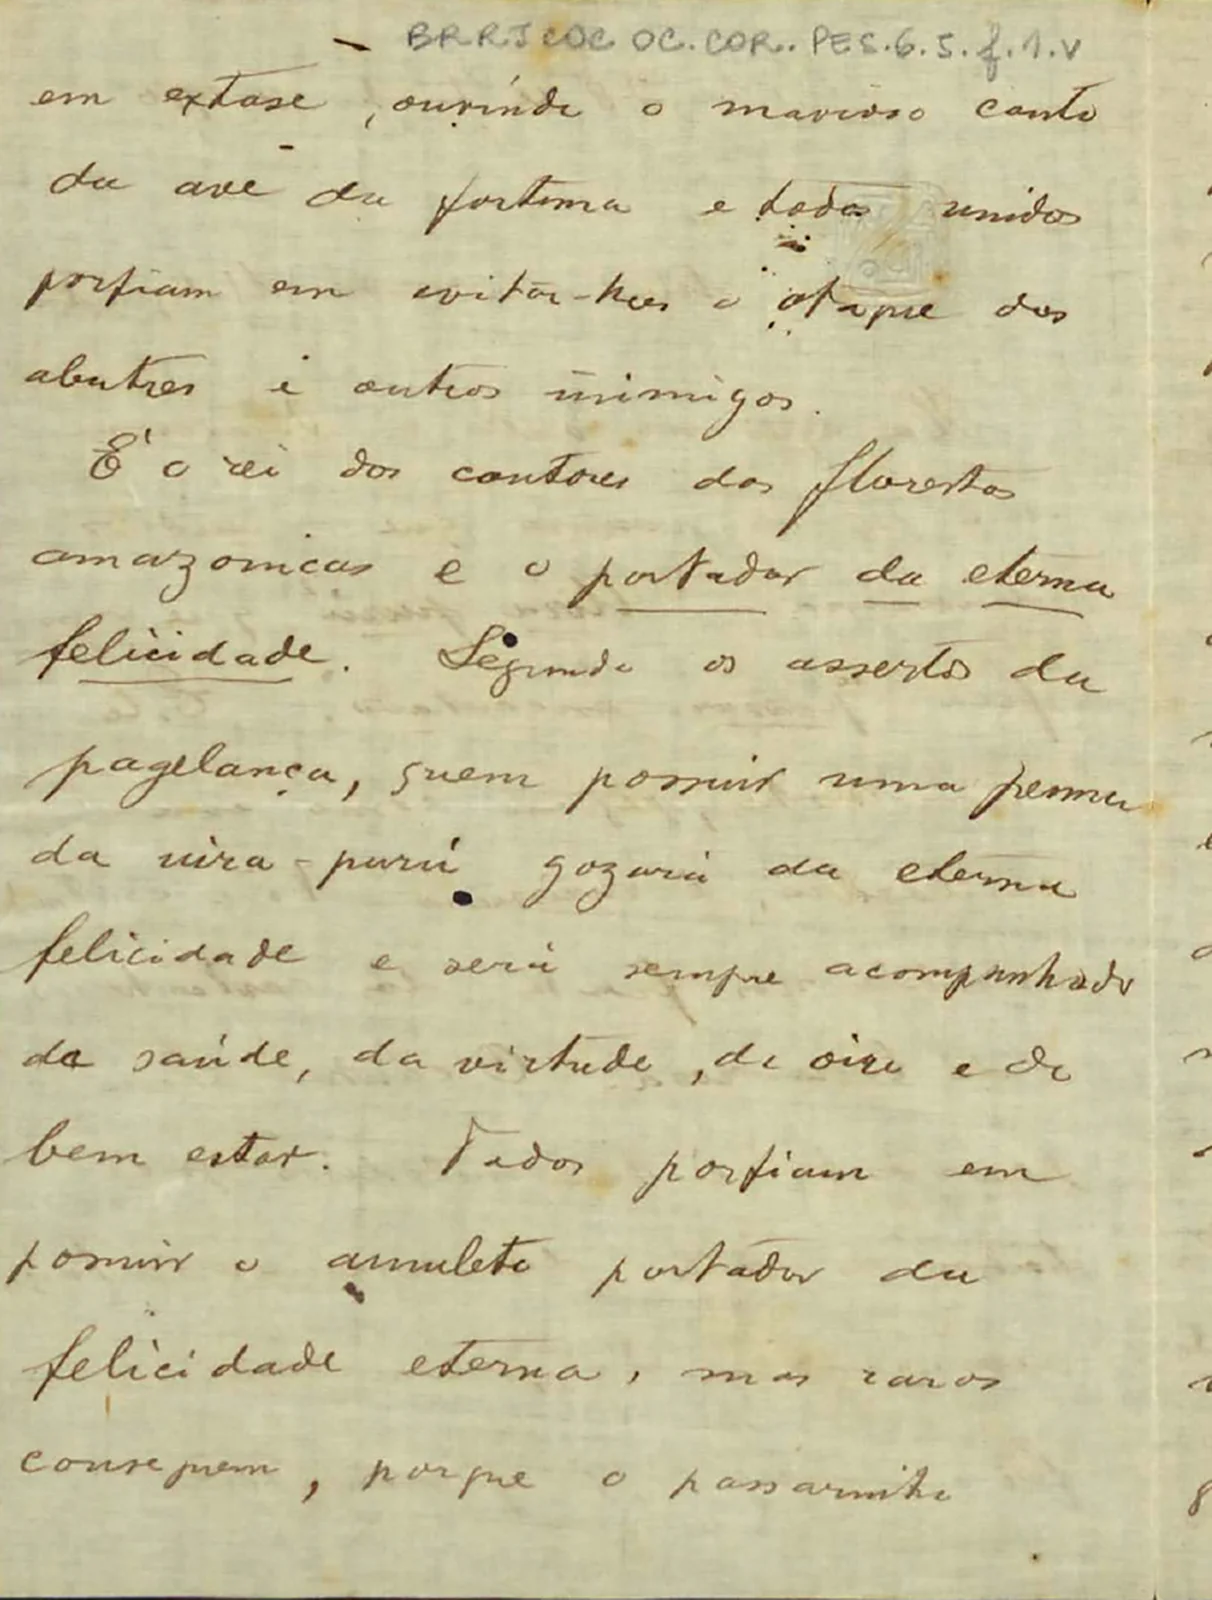 BRRJCOC OC.COR.PES.6.5.f.1.v
em extase, ouvindo o mavioso canto
da ave da fortuna e todos unidos
porfiam em evitar-lhes o ataque dos
abutres e outros inimigos.
É o rei dos cantores das florestas
amazonicas e o portador da eterna
felicidade. Segundo os assertos da
pagelança, quem possuir uma penna
da uira-purú gozará da eterna
felicidade e será sempre acompanhado
da saúde, da virtude, de oiro e de
bem estar. Todos porfiam em
possuir o amuleto portador da
felicidade eterna, mas raros
conseguem, porque o passarinho